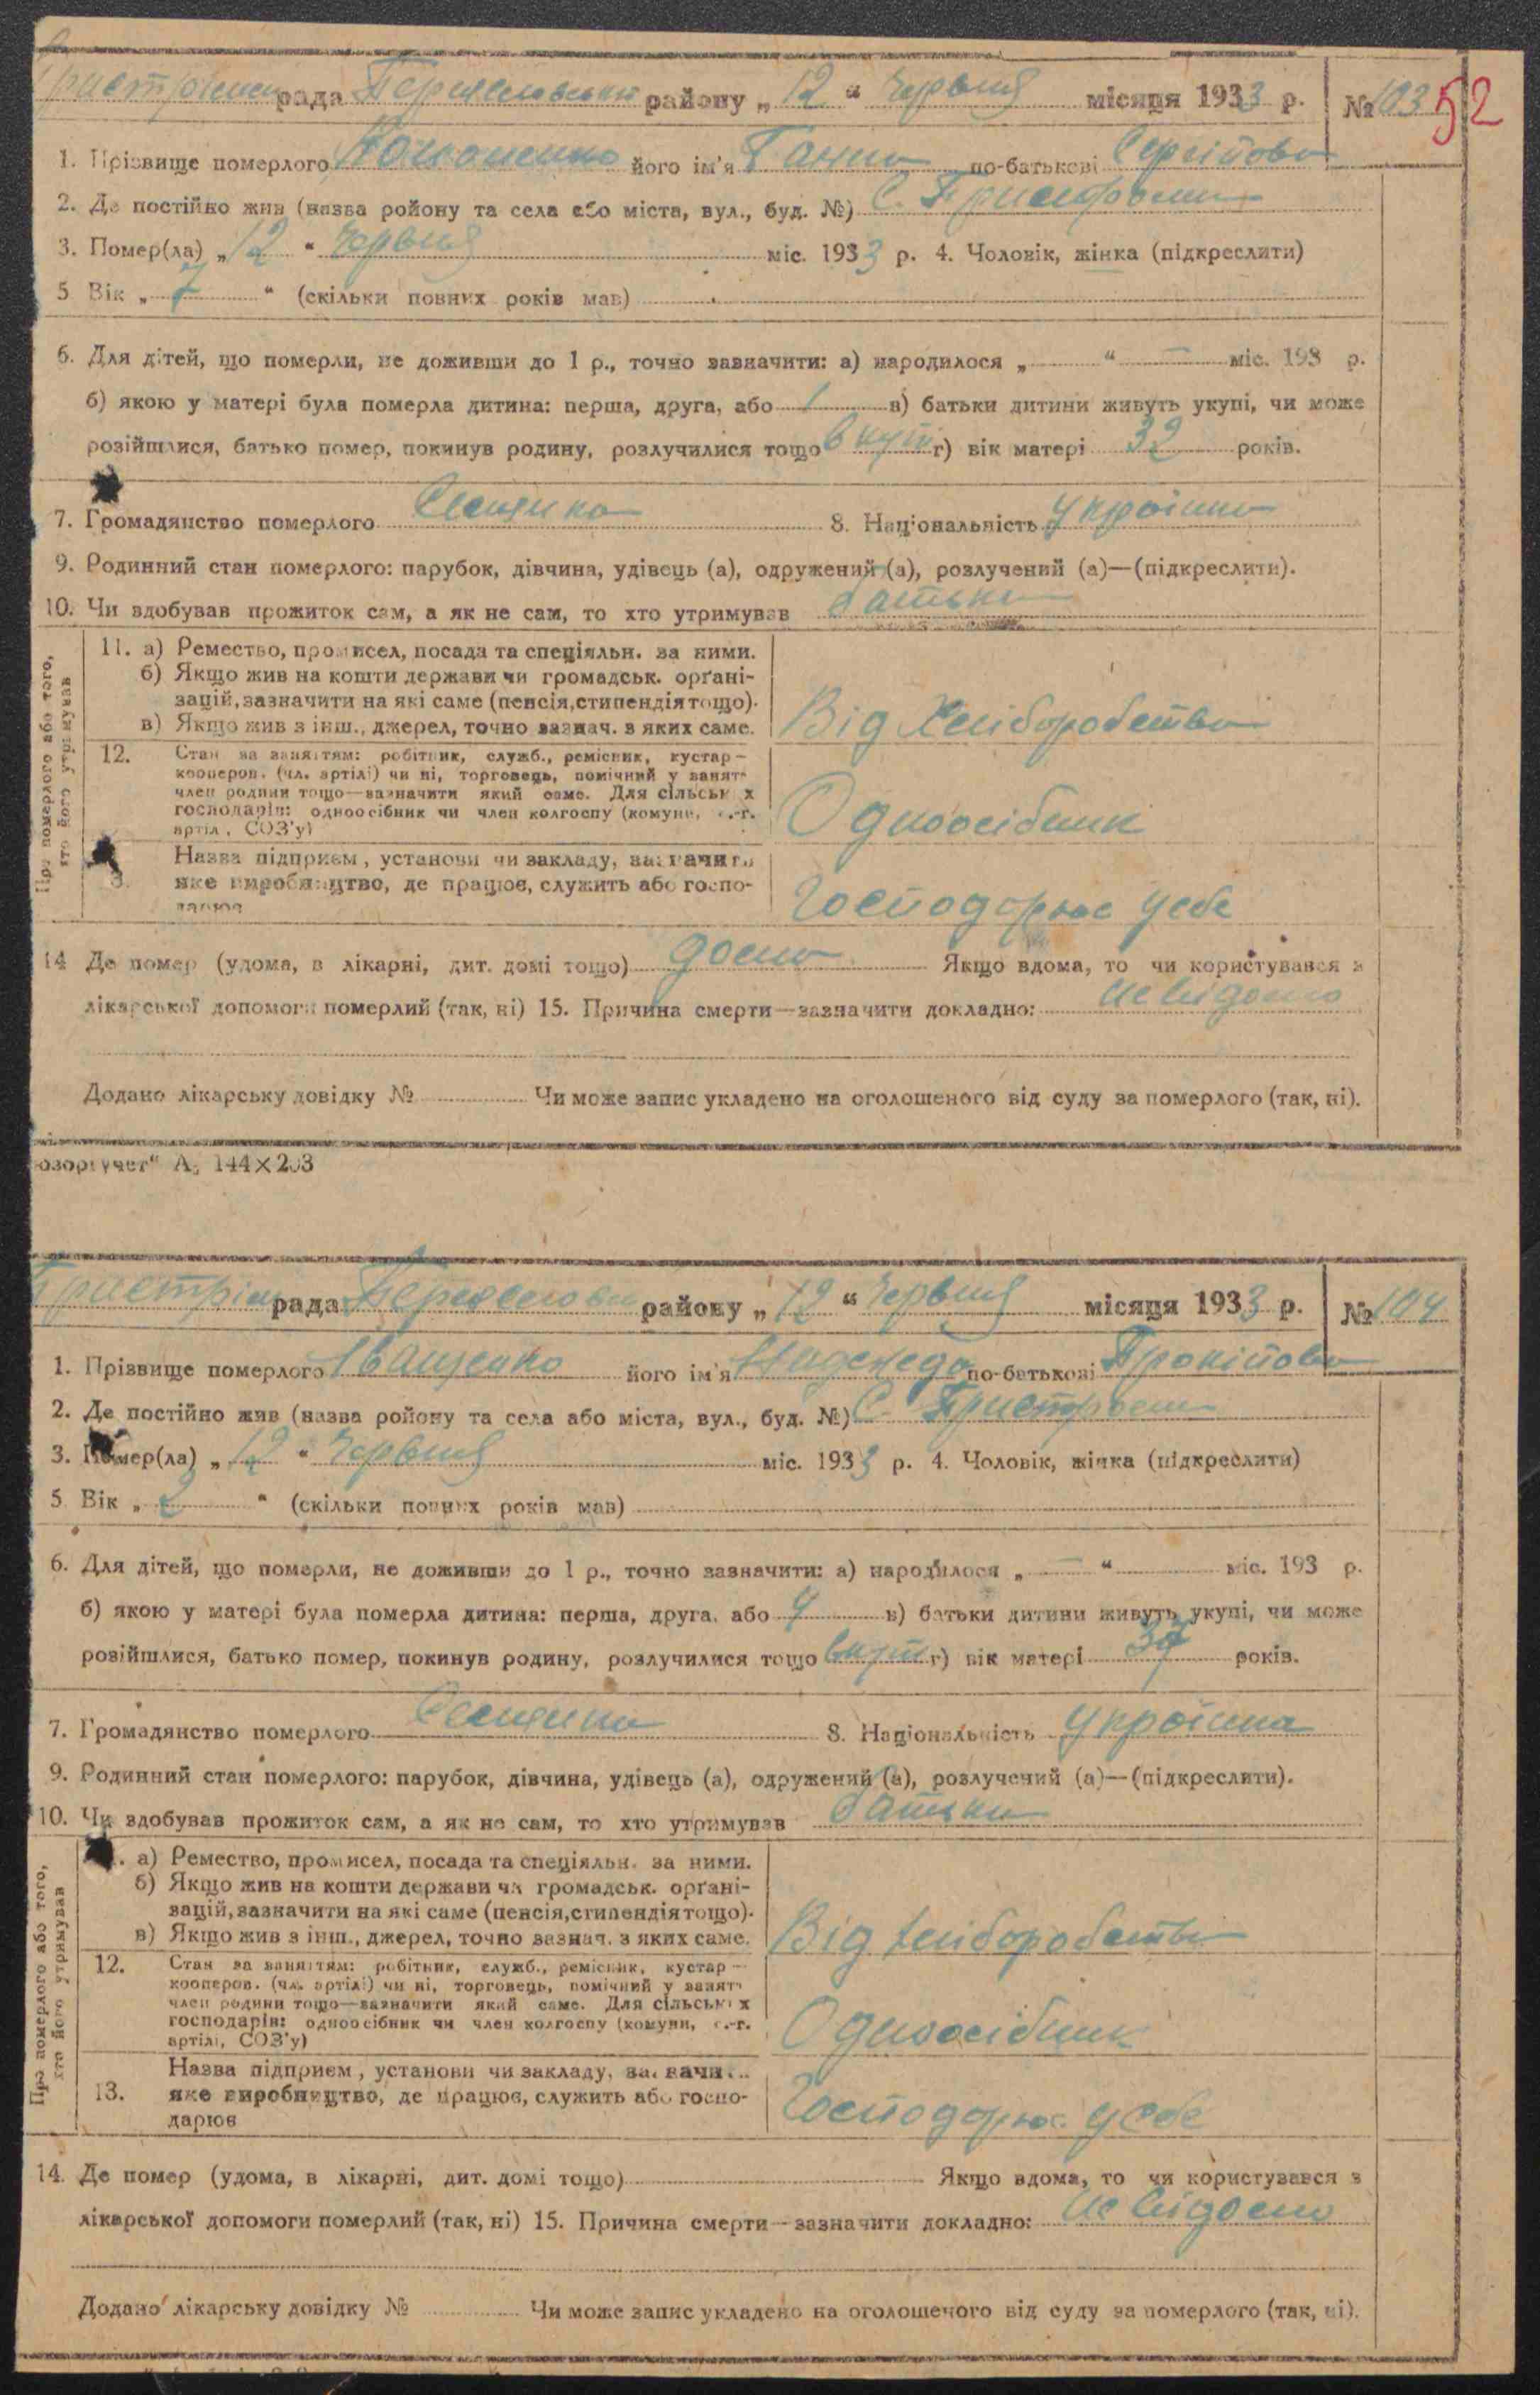 рада Переяславський району „ 12 “ Червня місяця 1933 р. № 103 52
1. Прізвище померлого Кононенко його ім'я Ганна по-батькові Сергійовна
2. Де постійно жив (назва ройону та села або міста, вул., буд. №) С. Пристроми
3. Помер(ла) „ 12 “ Червня міс. 1933 р. 4. Чоловік, жінка (підкреслити)
5 Вік „ 7 “ (скільки повних років мав)
6. Для дітей, що померли, не доживши до 1 р., точно зазначити: а) народилося „ — “ — міс. 193 р.
б) якою у матері була померла дитина: перша, друга, або 1 в) батьки дитини живуть укупі, чи може
розійшлися, батько помер, покинув родину, розлучилися тощо вкупі г) вік матері 32 років.
7. Громадянство померлого 8. Національність Українка
9. Родинний стан померлого: парубок, дівчина, удівець (а), одружений (а), розлучений (а)—(підкреслити).
10. Чи здобував прожиток сам, а як не сам, то хто утримував батьки
Про померлого або того,
хто його утримував
11. а) Ремество, промисел, посада та спеціяльн. за ними.
б) Якщо жив на кошти держави чи громадськ. орґані-
зацій, зазначити на які саме (пенсія, стипендія тощо).
в) Якщо жив з інш., джерел, точно зазнач. з яких саме.
Від Хліборобства
12. Стан за заняттям: робітник, служб., ремісник, кустар—
кооперов. (чл. артілі) чи ні, торговець, помічний у занят
член родини тощо—зазначити який саме. Для сільськ х
господарів: одноосібник чи член колгоспу (комуни, с.-г.
артіл, СОЗ'у)
Одноосібник
Назва підприєм, установи чи закладу, зазначити
яке виробництво, де працює, служить або госпо-
дарює
Господорює у себе
14 Де помер (удома, в лікарні, дит. домі тощо) дома Якщо вдома, то чи користувався з
лікарської допомоги померлий (так, ні) 15. Причина смерти—зазначити докладно: Не відомо
Додано лікарську довідку № Чи може запис укладено на оголошеного від суду за померлого (так, ні).
озоргучет“ А 144×203
рада району „ 12 “ Червня місяця 1933 р. № 104
1. Прізвище померлого Іващенко його ім'я Надежда по-батькові Прокіповна
2. Де постійно жив (назва ройону та села або міста, вул., буд. №) С. Пристроми
3. Помер(ла) „ 12 “ Червня міс. 1933 р. 4. Чоловік, жінка (підкреслити)
5 Вік „ 2 “ (скільки повних років мав)
6. Для дітей, що померли, не доживши до 1 р., точно зазначити: а) народилося „ — “ міс. 193 р.
б) якою у матері була померла дитина: перша, друга, або 4 в) батьки дитини живуть укупі, чи може
розійшлися, батько помер, покинув родину, розлучилися тощо вкупі г) вік матері 37 років.
7. Громадянство померлого 8. Національність Українка
9. Родинний стан померлого: парубок, дівчина, удівець (а), одружений (а), розлучений (а)—(підкреслити).
10. Чи здобував прожиток сам, а як не сам, то хто утримував батьки
Про померлого або того,
хто його утримував
а) Ремество, промисел, посада та спеціяльн. за ними.
б) Якщо жив на кошти держави чи громадськ. орґані-
зацій, зазначити на які саме (пенсія, стипендія тощо).
в) Якщо жив з інш., джерел, точно зазнач. з яких саме.
Від хліборобства
12. Стан за заняттям: робітник, служб., ремісник, кустар—
кооперов. (чл. артілі) чи ні, торговець, помічний у занят
член родини тощо—зазначити який саме. Для сільськ х
господарів: одноосібник чи член колгоспу (комуни, с.-г.
артілі, СОЗ'у)
Одноосібник
13. Назва підприєм, установи чи закладу, зазначити
яке виробництво, де працює, служить або госпо-
дарює
Господорює у себе
14. Де помер (удома, в лікарні, дит. домі тощо) Якщо вдома, то чи користувався з
лікарської допомоги померлий (так, ні) 15. Причина смерти—зазначити докладно: Не відомо
Додано лікарську довідку № Чи може запис укладено на оголошеного від суду за померлого (так, ні).